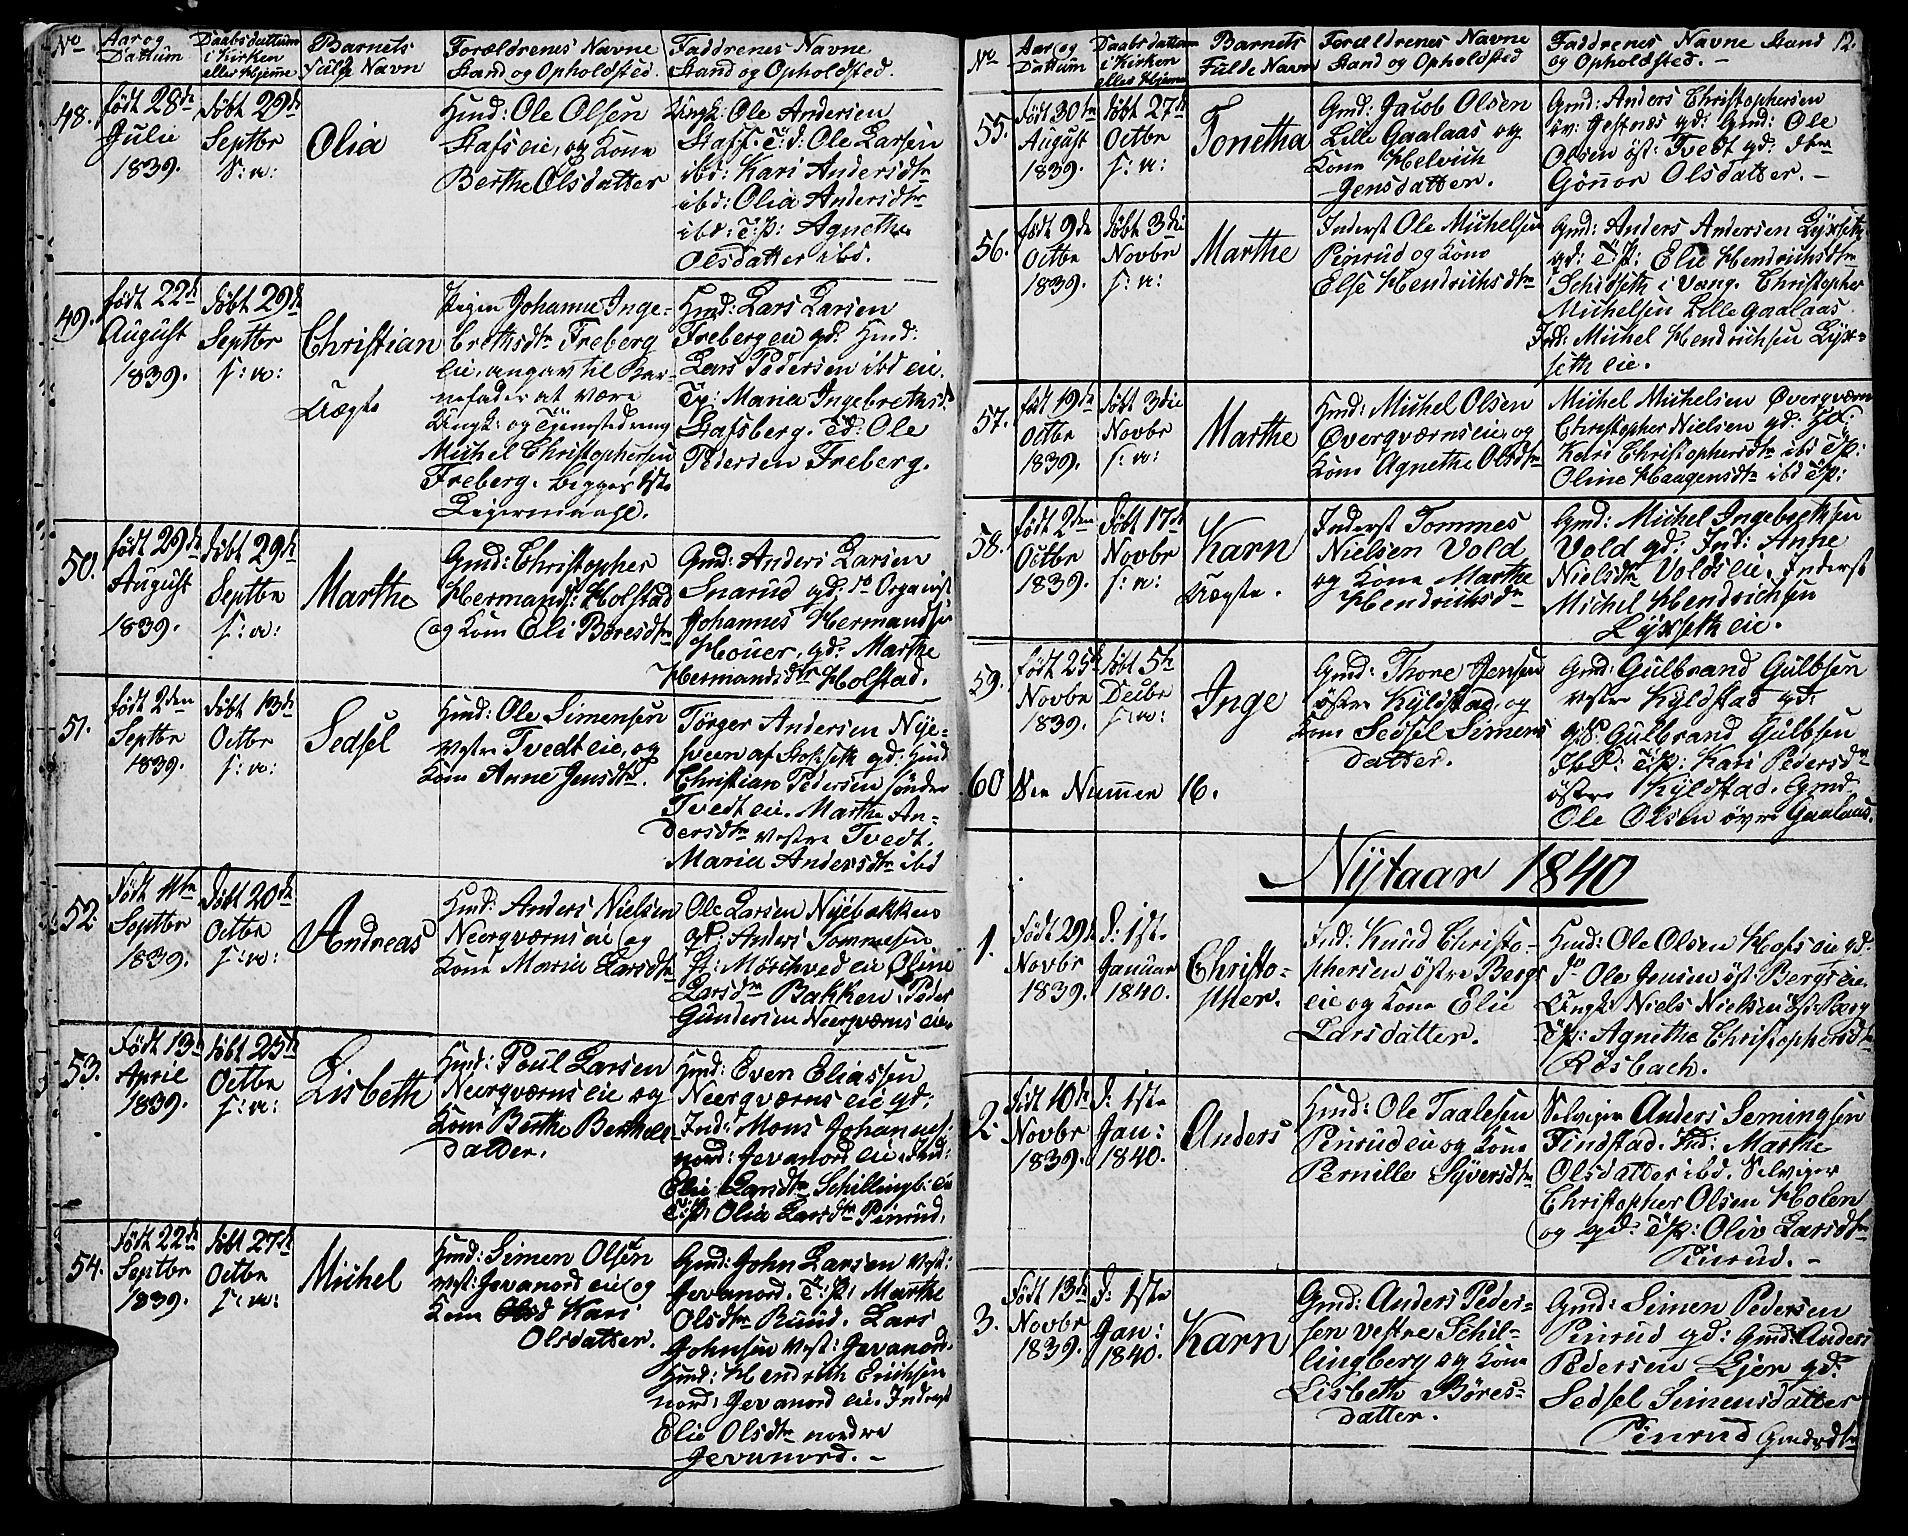 No
Aar og
Dattum
Daabsdattum
i Kirken
eller Hjeme
Barnets
Fulde Navn
Forældrenes Navne
Stand og Opholdsted.
Faddrenes Navne
Stand og Opholdsted.
48.
født 28de
Julii
1839.
døbt 29de
Septbr
S: n:
Olia
Hmd: Ole Olsen
Stafs eie, og Kone
Berthe Olsdatter
Ungk: Ole Andersen
Staff. T:d: Ole Larsen
ibd: Kari Andersdtr
ibd: Olia Andersdtr
ibd: T:p: Agnethe
Olsdatter ibd.
49.
født 22de
August
1839.
døbt 29de
Septbr
f: n:
Christian
Uægte
Pigen Johanne Inge-
brethsdtr Freberg
eie, angav til Bar-
nefader at være
Ungk: og Tjenestedreng
Michel Christophersen
Freberg. begges 1ste
Leiermaael.
Hmd: Lars Larsen
Frebergen gd: Hmd:
Lars Pedersen ibd eie.
Tp: Maria Ingebrethsd
Stafsberg. Td: Ole
Pedersen Freberg.
50.
født 29de
August
1839.
døbt 29de
Septbr
f: n:
Marthe
Gmd: Christopher
Hermands: Holstad
og Kone Eli Børesdtr
Gmd: Anders Larsen
Snarud gd: So Organist
Johannes Hermandsen
Houer, gd: Marthe
Hermandsdtr Holstad.
51.
født 2den
Septbr
1839.
døbt 13de
Octbr
f: n:
Sedsel
Hmd: Ole Simensen
Vestre Tvedt eie, og
Kone Anne Jensdtr.
Törger Andersen Nye-
sveen af Stokseth gd: Hmd
Christian Pedersen søndre
Tvedt eie. Marthe An-
dersdtr Vestre Tvedt.
Maria Andersdtr ibd
52.
født 11te
Septbr
1839.
døbt 20de
Octbr
f: n:
Andreas
Hmd: Anders Nielsen
Neergværns eie og
Kone Maria Larsdtr
Ole Larsen Nyebakken
gd: Anders Tommesen
f: Mörchved eie Oline
Larsdtr Bakken. Peder
Gundersen Neergværns eie.
53.
født 13de
April
1839.
døbt 25de
Octbr
f: n:
Lisbeth
Hmd: Poul Larsen
Neergværns eie og
Kone Berthe Berthel-
datter.
Hmd: Even Eliassen
Neergværns eie gd:
Ind: Mons Johannes:
nord: Jevanord eie. Ind:
Elie Larsdtr Schillingb: eie
T:p: Olia Larsdtr Pinrud.
54.
født 22de
Septbr
1839.
døbt 27de
Octbr
f: n:
Michel
Hmd: Simen Olsen
Vest: Jevanord eie og
Kone Kari
Olsdatter.
Gmd: John Larsen Vest:
Jevanord. T:p: Marthe
Olsdtr Ruud. Lars
Johnsen Vest: Jevanord.
Hmd: Hendrich Erichsen
nord: Jevanord eie. Inderst
Elie Olsdtr nordre
Jevanord. -
No
Aar og
Dattum
Daabsdattum
i Kirken
eller Hjeme
Barnets
Fulde Navn
Forældrenes Navne
Stand og Opholdsted
Faddrenes Navne Stand
og Opholdsted. -
12.
55.
født 30te
August
1839.
døbt 27de
Octbr
f: n:
Tonetha
Gmd: Jacob Olsen
Lille Gaalaas og
Kone Helvich
Jensdatter.
Gmd: Anders Christophersen
öv: Jestnæs gd: Gmd: Ole
Olsen öst: Tvedt gd:
Gönnor Olsdatter. -
56.
født 9de
Octbr
1839.
døbt 3die
Novbr
f: n:
Marthe
Inderst Ole Michelsen
Pinrud og Kone
Else Hendrichsdtr
Gmd: Anders Andersen Lyxseth
gd: T:p: Elie Hendrichsdtr
Schidseth i Vang. Christopher
Michelsen Lille Gaalaas.
Ind: Michel Hendrichsen Lyx-
seth eie.
57.
født 19de
Octbr
1839.
døbt 3die
Novbr
f: n:
Marthe
Hmd: Michel Olsen
Övergværns eie, og
Kone Agnethe Olsdtr
Michel Michelsen Övergværn
Christopher Nielsen gd:
Kari Christophersdtr ibd T:p:
Oline Haagensdtr ibd T:p:
58.
født 2den
Octbr
1839.
døbt 17de
Novbr
f: n:
Karn
Uægte.
Inderst Tommes
Nielsen Vold
og Kone Marthe
Hendrichsdtr
Gmd: Michel Ingebrethsen
Vold gd: Ind: Anne
Nielsdtr Volds eie. Inderst
Michel Hendrichsen
Lyxseth eie.
59.
født 25de
Novbr
1839.
døbt 5te
Decbr
f: n:
Inge
Gmd: Thore Jensen
østre Kyldstad, og
Kone Sedsel Simens
datter.
Gmd: Gulbrand Gulbsen
Vestre Kyldstad gd:
Gulbrand Gulbsen
Ibd: T:p: Kari Pedersdtr
østre Kyldstad. Gmd
Ole Olsen övre Gaalaas.
60
See Nummer 16.
Nytaar 1840
1.
født 29de
Novbr
1839.
D: 1ste
Januar
1840.
Christo-
pher.
Ind: Knud Christo-
phersen østre Bergs
eie og Kone Elie
Larsdatter.
Hmd: Ole Olsen Hofs eie gd:
do Ole Jensen öst: Bergs eie.
Ungk: Niels Nielsen öst: Berg
T:p: Agnethe Christophersdtr
Røsbach.
2.
født 10de
Novbr
1839.
D: 1ste
Jan:
1840.
Anders
Hmd: Ole Taalesen
Pinrud eie og Kone
Pernille Syversdtr
Selveier Anders Semingsen
Findstad. Ind: Marthe
Olsdatter ibd. Selveier
Christopher Olsen Holen
og gd: T:p: Oliv Larsdtr
Pinrud. -
3.
født 13de
Novbr
1839.
D: 1ste
Jan:
1840.
Karn
Gmd: Anders Peder-
sen vestre Schil-
lingberg og Kone
Lisbeth Børes-
datter.
Gmd: Simen Pedersen
Pinrud gd: Gmd: Anders
Pedersen Gjer gd:
Sedsel Simensdatter
Pinrud Gmdsdtr